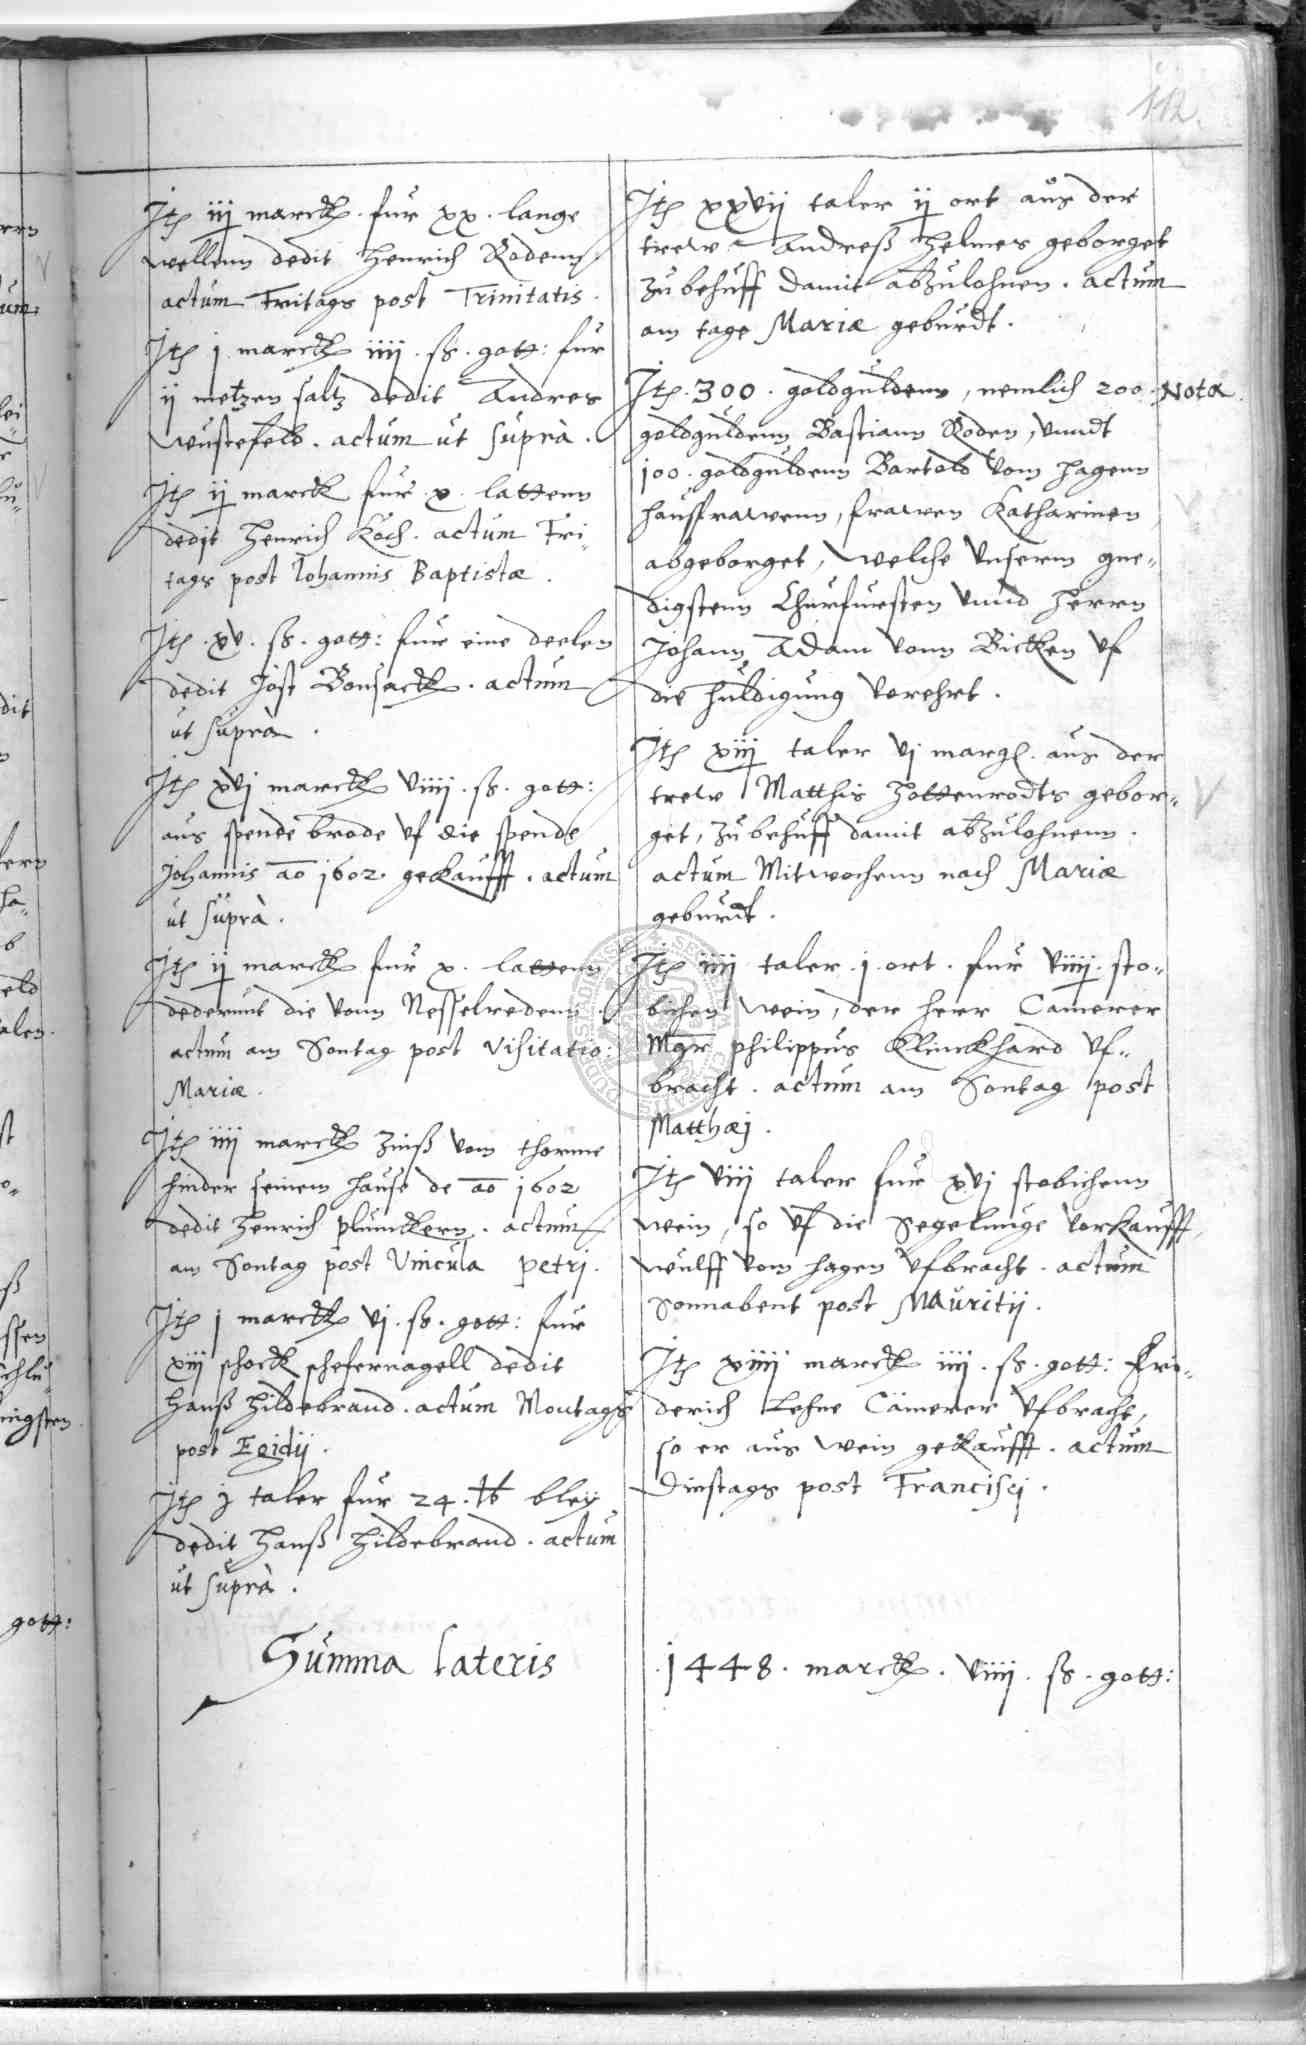 112.
Itē iij marck. fur xx. lange
wellenn dedit Henrich Rodenn
actum Fritags post Trinitatis.
Itē j marck iiij. ß. gott: fur
ij metzen saltz dedit Andres
Wustefeld. actum ut suprà.
Itē ij marck fur. x. lattenn
dedit Henrich Koch. actum Fri-
tags post Iohannis Baptistæ.
Itē. xv. ß. gott: fur eine deelen
dedit Jost Bonsack. actum
ut suprà.
Itē xvj marck viiij. ß. gott:
aus spende brode uf die spende
Johannis ao 1602. gekaufft. actum
ut suprà.
Itē ij marck fur x. lattenn
dederunt die vonn Nesselredenn.
actum am Sontag post Visitatio:
Mariæ.
Itē iiij marck Zinß vom thorme
hinder seinem hause de ao 1602
dedit Henrich plunckern. actum
am Sontag post Vincula Petrj.
Itē j marck vj. ß. gott: fur
xiij schock schefernagell dedit
Hanß Hildebrand. actum Montags
post Egidij.
Itē j taler fur 24. ℔ bley
dedit Hanß Hildebrand. actum
ut suprà.
Itē xxvij taler ij ort aus der
trew Andreß Helmes geborget
zu behuff damit abzulohnen. actum
am tage Mariæ geburdt.
Itē. 300. goldguldenn, nemlich 200. Nota.
goldguldenn Bastiann Roden, vnndt
100. goldguldenn Bartold vom Hagenn
haussfrawenn, frawen Katharinen,
abgeborget, welche vnserm gne-
digstenn Churfursten vnnd Herrn
Johann Adam vonn Bicken uf
die huldigung verehrt.
Itē xiij taler vj margk. aus der
trew Matthis Hottenrodts gebor-
get, zu behuff damit abzulohnenn.
actum Mitwochenn nach Mariæ
geburdt.
Itē iiij taler. j. ort. fur viiij. sto-
bichen wein, der herr Camerer
Mgr Philippus Klinckhard uf-
bracht. actum am Sontag post
Matthæj.
Itē viij taler fur xvj stobichenn
wein, so uf die Segelunge vorkaufft,
Wulff vom Hagen ufbracht. actum
Sonnabent post Mauritij.
Itē xviij marck iiij. ß. gott: Fri-
derich Lehne Cämerer ufbracht,
so er aus wein gekaufft. actum
Dinstags post Francisci.
Summa lateris
1448. marck. viiij. ß. gott: